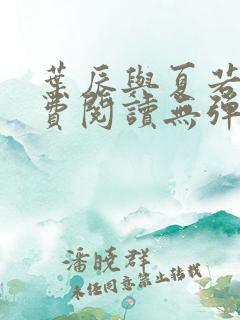 葉辰與夏若
費閱讀無彈
潘曉群
未经同意禁止转载